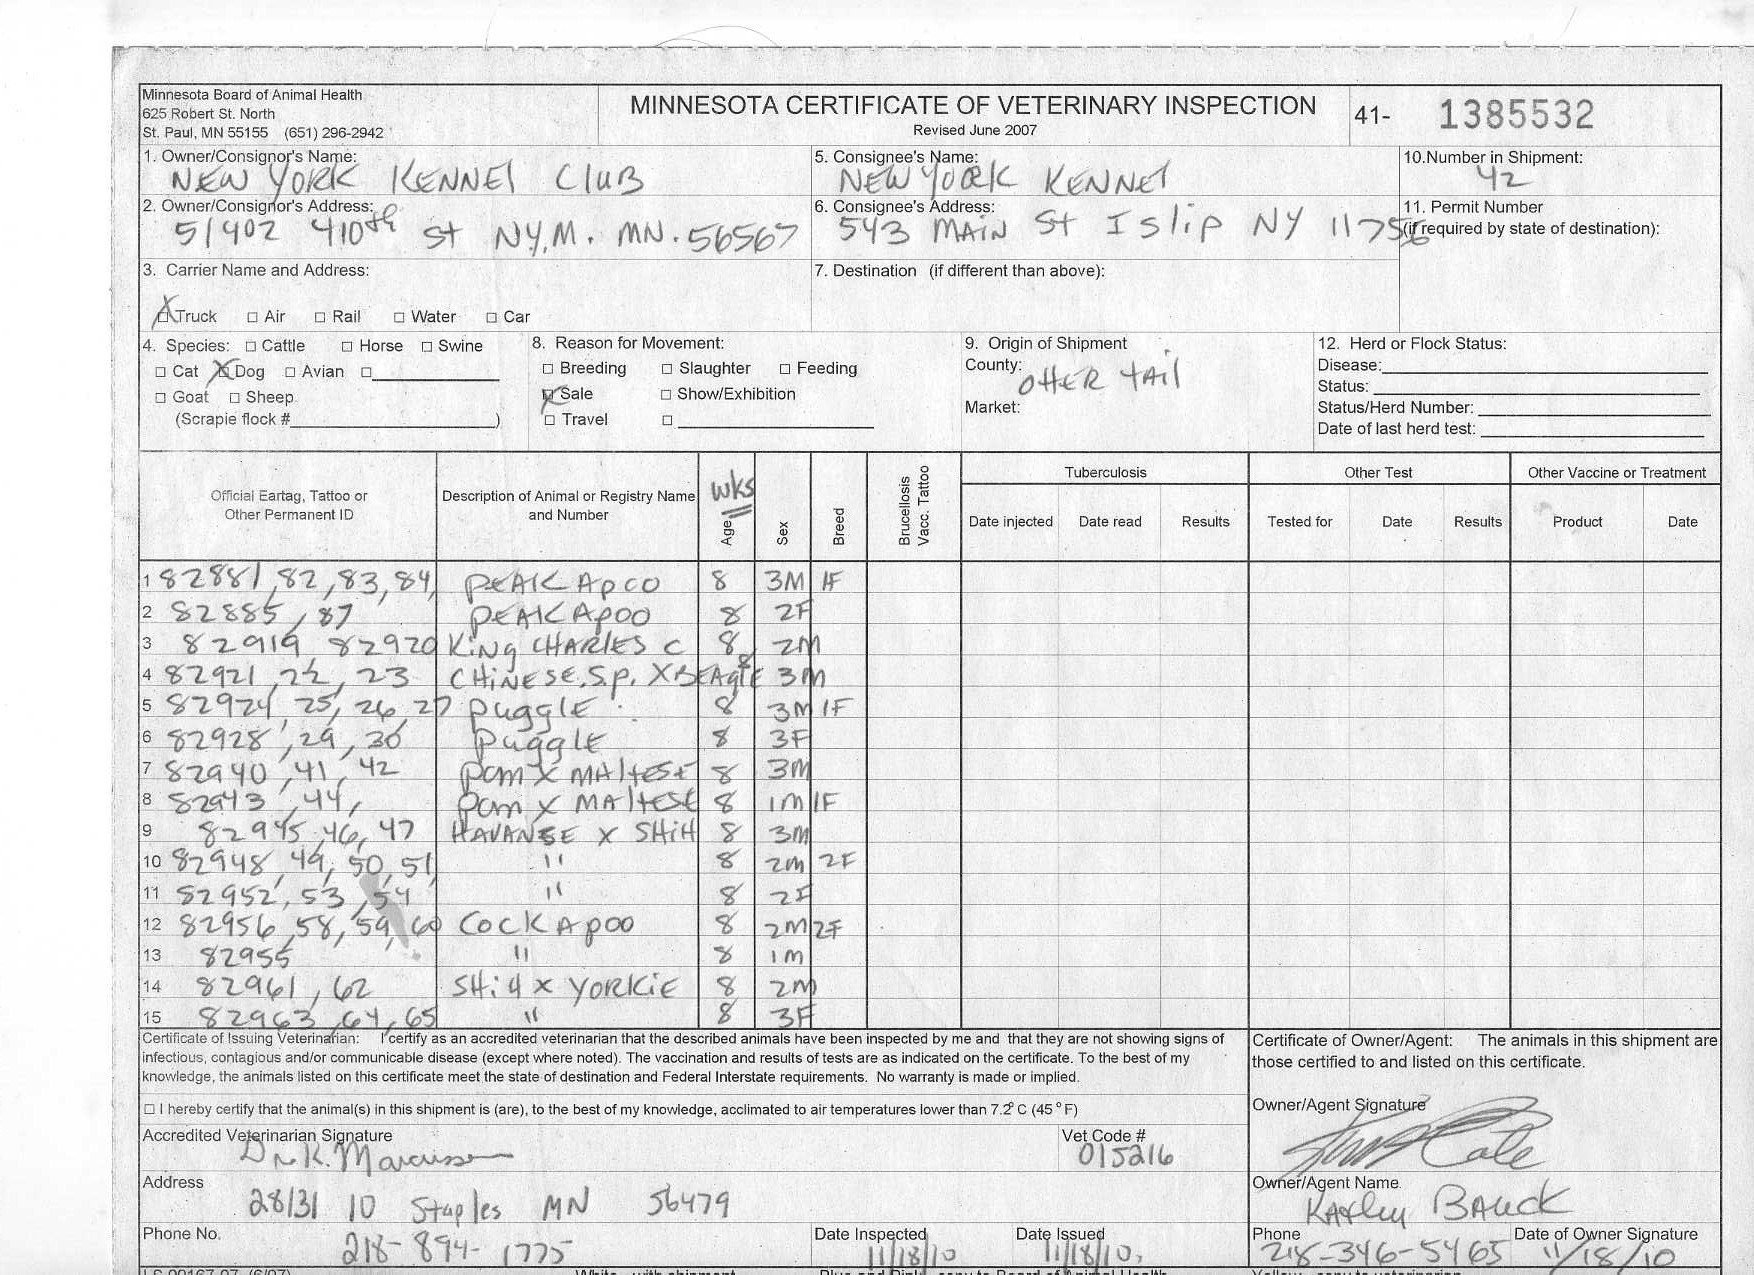 Minnesota Board of Animal Health
625 Robert St. North
St. Paul, MN 55155 (651) 296-2942
MINNESOTA CERTIFICATE OF VETERINARY INSPECTION
Revised June 2007
41- 1385532
1. Owner/Consignor's Name:
NEW YORK KENNEL CLUB
5. Consignee's Name:
NEW YORK KENNEL
10.Number in Shipment:
42
2. Owner/Consignor's Address:
51402 410th St NY.M. MN. 56567
6. Consignee's Address:
543 MAIN St Islip NY 11756
11. Permit Number
(if required by state of destination):
3. Carrier Name and Address:
7. Destination (if different than above):
X Truck □ Air □ Rail □ Water □ Car
4. Species: □ Cattle □ Horse □ Swine
□ Cat X Dog □ Avian □
□ Goat □ Sheep
(Scrapie flock # )
8. Reason for Movement:
□ Breeding □ Slaughter □ Feeding
X Sale □ Show/Exhibition
□ Travel □
9. Origin of Shipment
County: OttER tAil
Market:
12. Herd or Flock Status:
Disease:
Status:
Status/Herd Number:
Date of last herd test:
Official Eartag, Tattoo or
Other Permanent ID
Description of Animal or Registry Name
and Number
wks
Age
Sex
Breed
Brucellosis
Vacc. Tattoo
Tuberculosis
Date injected Date read Results
Other Test
Tested for Date Results
Other Vaccine or Treatment
Product Date
1 82881,82,83,84, PEAKApoo 8 3M 1F
2 82885,87 PEAKApoo 8 2F
3 82919 82920 KiNg CHARlES C 8 2M
4 82921,22,23 CHiNESE.S.p. XBEAglE 8 3M
5 82924,25,26,27 puggLE 8 3M 1F
6 82928,29,30 puggLE 8 3F
7 82940,41,42 pom X MAltESE 8 3M
8 82943,44, pom X MAltESE 8 1M 1F
9 82945,46,47 HAVANESE X SHiH 8 3M
10 82948,49,50,51 " 8 2M 2F
11 82952,53,54 " 8 2F
12 82956,58,59,60 COCKApoo 8 2M 2F
13 82955 " 8 1M
14 82961,62 SHiH X YORKiE 8 2M
15 82963,64,65 " 8 3F
Certificate of Issuing Veterinarian: I certify as an accredited veterinarian that the described animals have been inspected by me and that they are not showing signs of
infectious, contagious and/or communicable disease (except where noted). The vaccination and results of tests are as indicated on the certificate. To the best of my
knowledge, the animals listed on this certificate meet the state of destination and Federal Interstate requirements. No warranty is made or implied.
Certificate of Owner/Agent: The animals in this shipment are
those certified to and listed on this certificate.
□ I hereby certify that the animal(s) in this shipment is (are), to the best of my knowledge, acclimated to air temperatures lower than 7.2° C (45° F)
Owner/Agent Signature
Accredited Veterinarian Signature
Dr. K. Marcusson
Vet Code #
015216
Address
28131 10 Staples MN 56479
Owner/Agent Name
Kathy BAUCK
Phone No.
218-894-1775
Date Inspected
11/18/10
Date Issued
11/18/10
Phone
218-346-5465
Date of Owner Signature
11/18/10